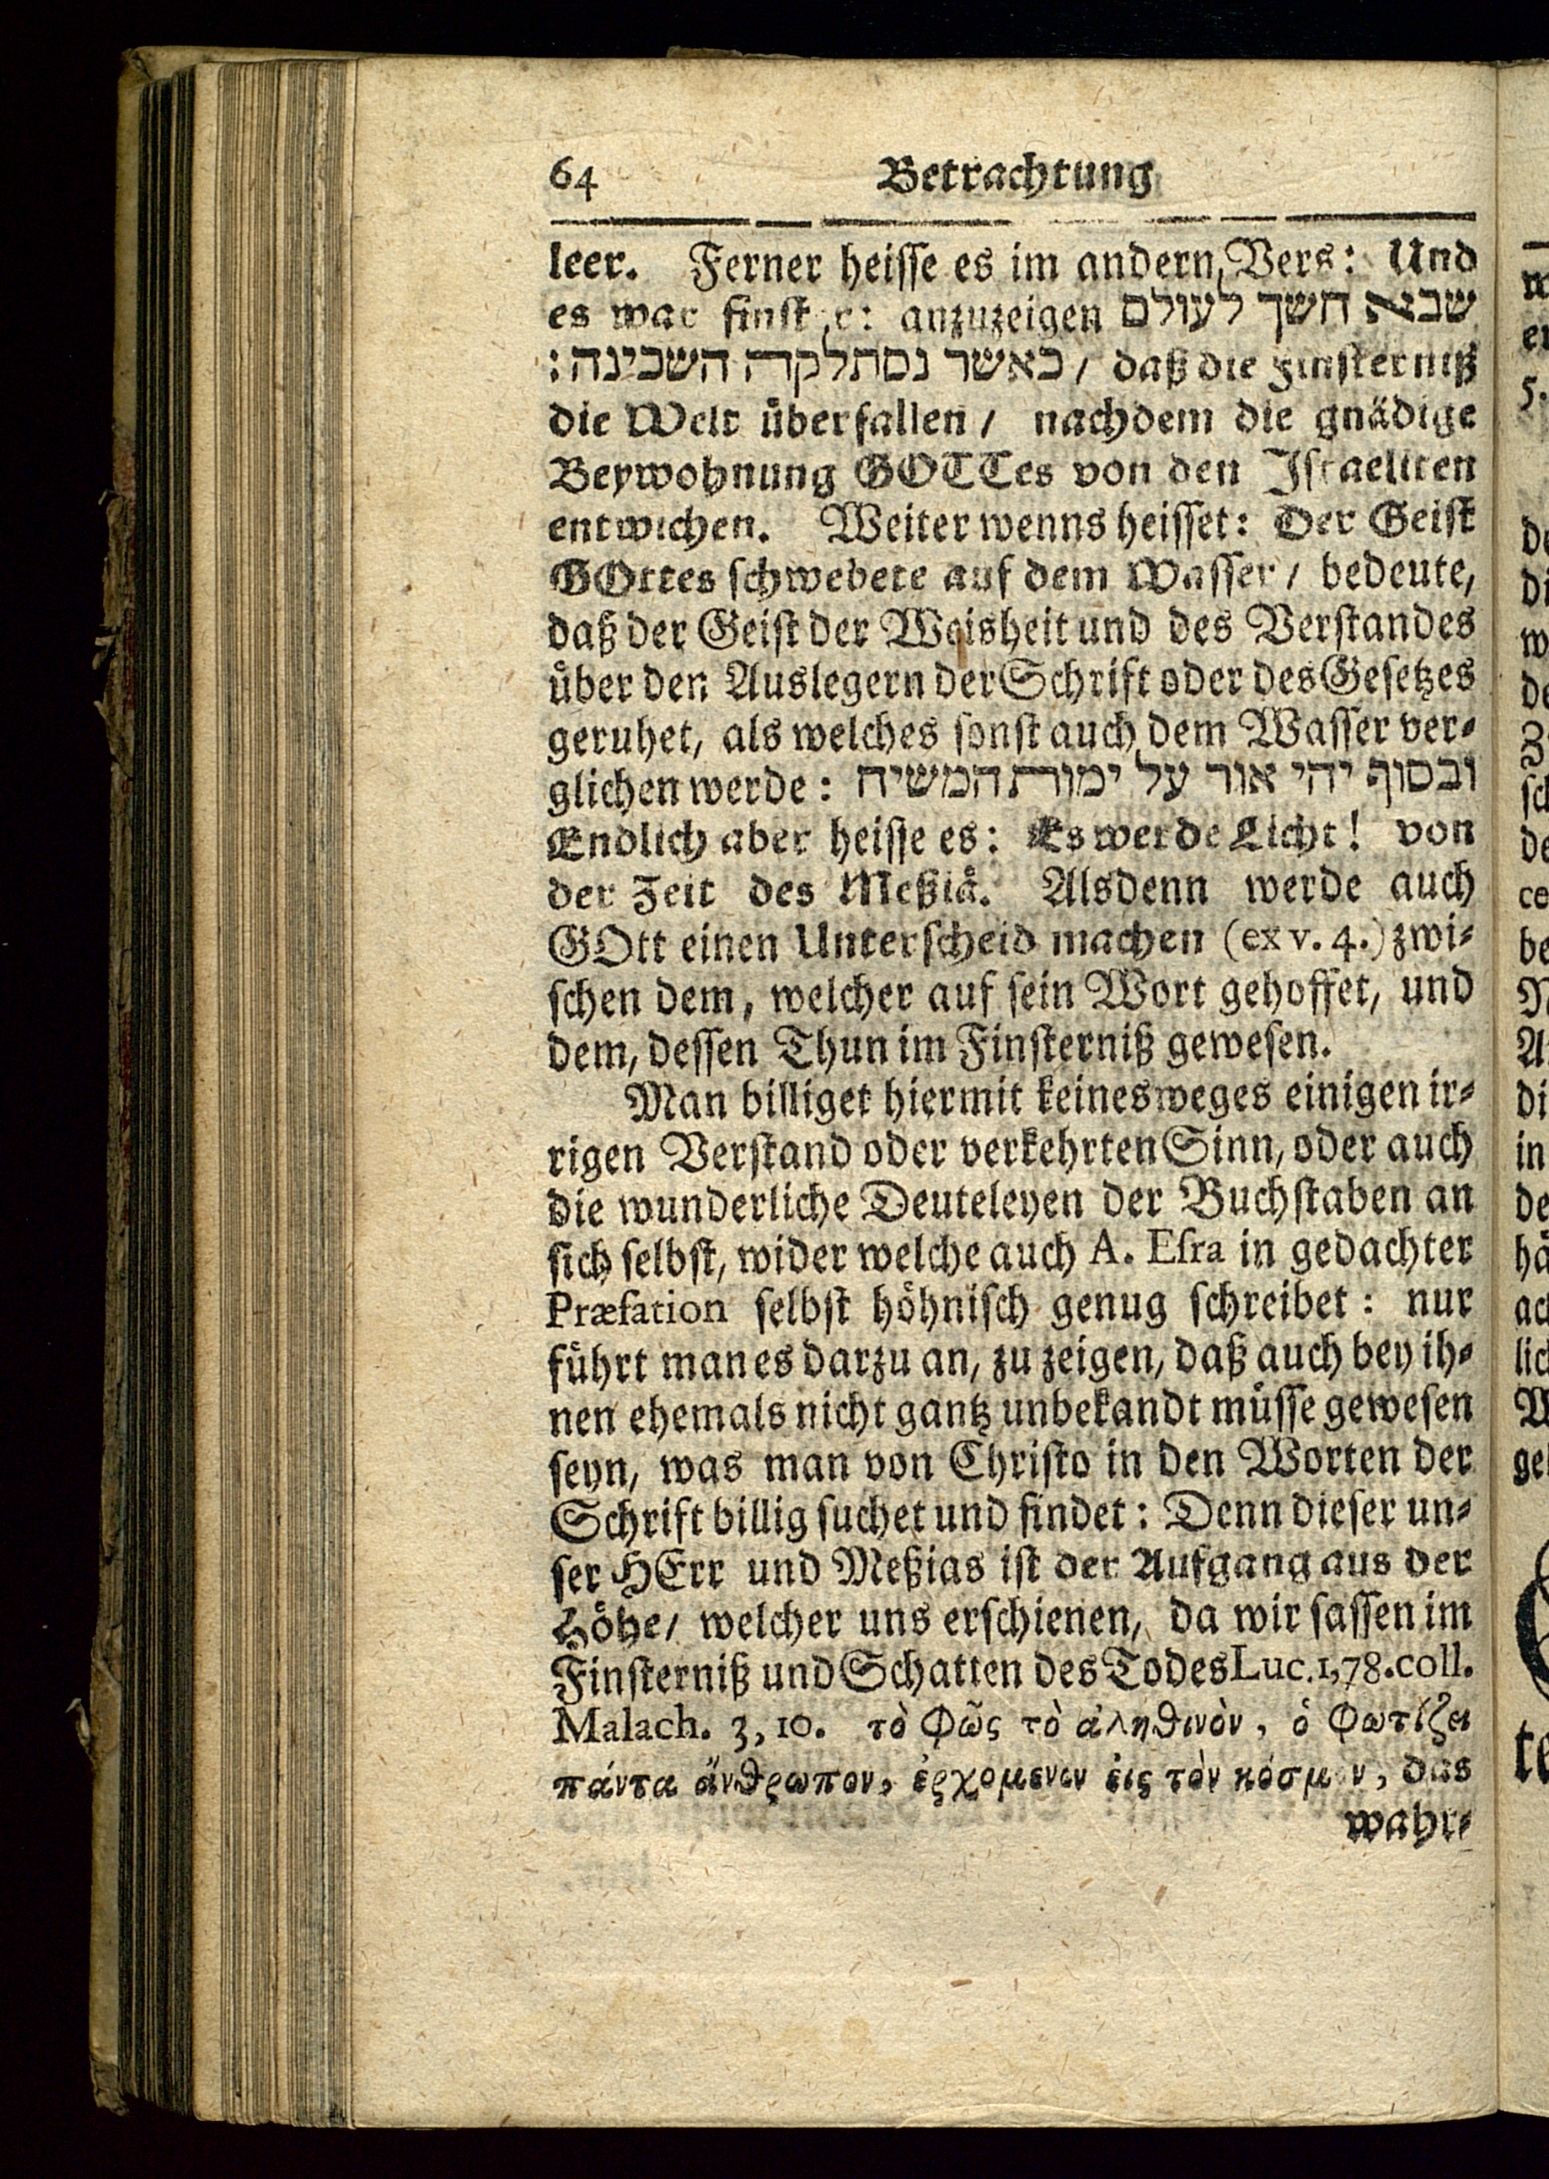 64 Betrachtung
leer. Ferner heisse es im andern Vers: Und
es war finster: anzuzeigen שבא חשך לעולם
כאשר נסתלקה השכינה: / daß die Finsterniß
die Welt überfallen / nachdem die gnädige
Beywohnung GOTTes von den Israeliten
entwichen. Weiter wenns heisset: Der Geist
GOttes schwebete auf dem Wasser / bedeute,
daß der Geist der Weisheit und des Verstandes
über den Auslegern der Schrift oder des Gesetzes
geruhet, als welches sonst auch dem Wasser ver-
glichen werde: ובסוף יהי אור על ימות המשיח
Endlich aber heisse es: Es werde Licht! von
der Zeit des Meßiä. Alsdenn werde auch
GOtt einen Unterscheid machen (ex v. 4.) zwi-
schen dem, welcher auf sein Wort gehoffet, und
dem, dessen Thun im Finsterniß gewesen.
Man billiget hiermit keinesweges einigen ir-
rigen Verstand oder verkehrten Sinn, oder auch
die wunderliche Deuteleyen der Buchstaben an
sich selbst, wider welche auch A. Esra in gedachter
Præfation selbst höhnisch genug schreibet: nur
führt man es darzu an, zu zeigen, daß auch bey ih-
nen ehemals nicht gantz unbekandt müsse gewesen
seyn, was man von Christo in den Worten der
Schrift billig suchet und findet: Denn dieser un-
ser HErr und Meßias ist der Aufgang aus der
Höhe / welcher uns erschienen, da wir sassen im
Finsterniß und Schatten des Todes Luc. 1,78. coll.
Malach. 3, 10. τὸ Φῶς τὸ ἀληθινὸν, ὁ Φωτίζει
πάντα ἄνθρωπον, ἐρχομενον ἐις τὸν κόσμον, das
wahr-